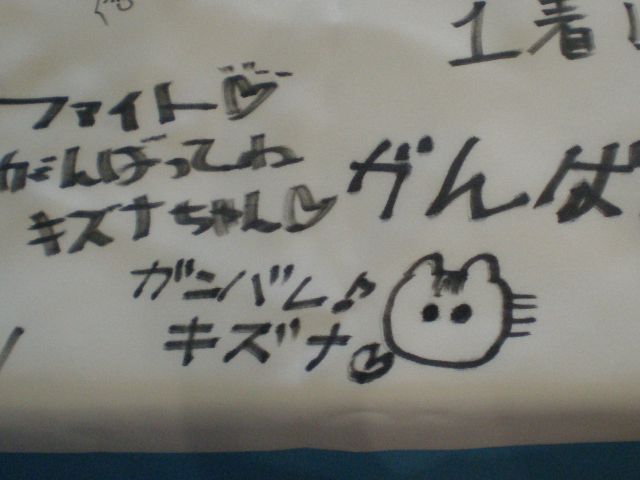 1着
ファイト♡
がんばってね
キズナちゃん♡
がんば
ガンバレ♪
キズナ